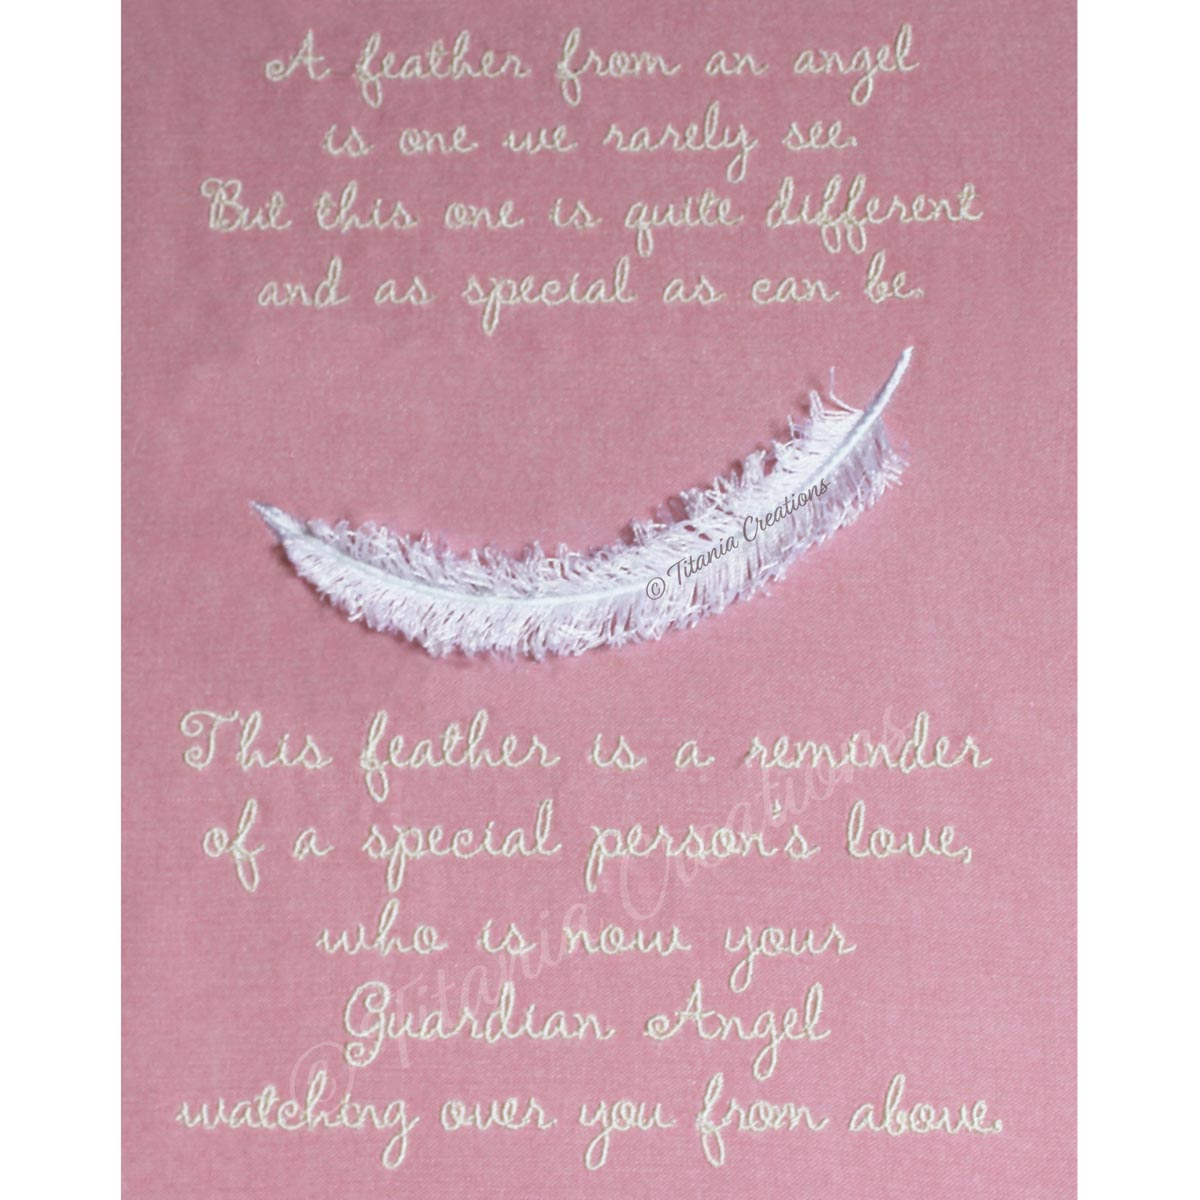 A feather from an angel
is one we rarely see.
But this one is quite different
and as special as can be.
© Titania Creations
This feather is a reminder
of a special person's love,
who is now your
Guardian Angel
watching over you from above.
© Titania Creations